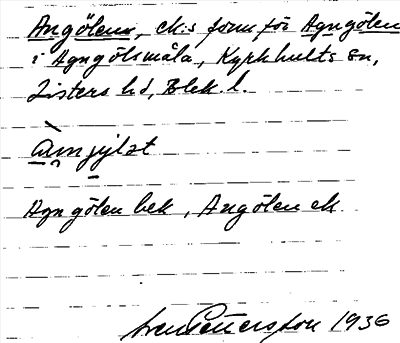 Angölen, ek:s form för Agngölen
i Agngölsmåla, Kyrkhults sn,
Listers hd, Blek. l.
Agngölen bek, Angölen ek.
1936